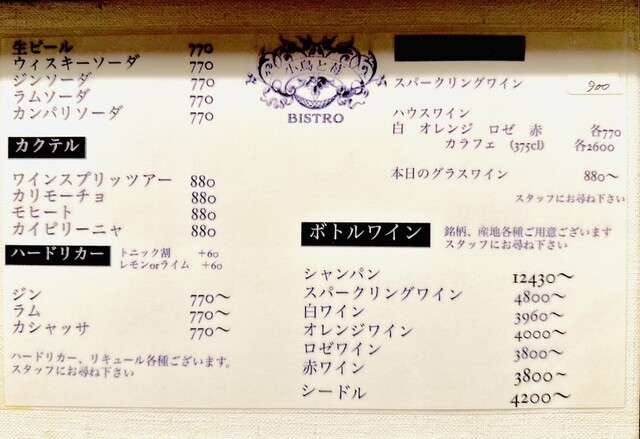 生ビール 770
ウィスキーソーダ 770
ジンソーダ 770
ラムソーダ 770
カンパリソーダ 770
カクテル
ワインスプリッツアー 880
カリモーチョ 880
モヒート 880
カイピリーニャ 880
ハードリカー トニック割 +60
レモンorライム +60
ジン 770〜
ラム 770〜
カシャッサ 770〜
ハードリカー、リキュール各種ございます。
スタッフにお尋ね下さい
小鳥と苺
BISTRO
スパークリングワイン 900
ハウスワイン
白 オレンジ ロゼ 赤 各770
カラフェ (375cl) 各2600
本日のグラスワイン 880〜
スタッフにお尋ね下さい
ボトルワイン 銘柄、産地各種ご用意ございます
スタッフにお尋ね下さい
シャンパン 12430〜
スパークリングワイン 4800〜
白ワイン 3960〜
オレンジワイン 4000〜
ロゼワイン 3800〜
赤ワイン 3800〜
シードル 4200〜